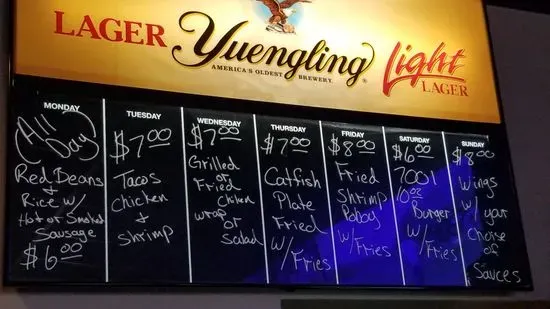 LAGER Yuengling Light
LAGER
AMERICA'S OLDEST BREWERY.
MONDAY
All
Day
Red Beans
&
Rice w/
Hot or Smoked
Sausage
$6.00
TUESDAY
$7.00
Tacos
Chicken
+
Shrimp
WEDNESDAY
$7.00
Grilled
or
Fried
Chicken
wrap
or
Salad
THURSDAY
$7.00
Catfish
Plate
Fried
w/Fries
FRIDAY
$8.00
Fried
Shrimp
Poboy
w/Fries
SATURDAY
$6.00
7001
10oz
Burger
w/Fries
SUNDAY
$8.00
Wings
w/ your
Choice
of
Sauces